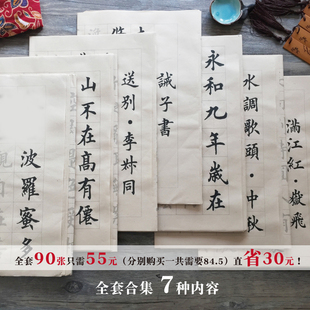 波羅蜜多
山不在高有僊
送别·李叔同
誡子書
永和九年歲在
水調歌頭·中秋
滿江紅·嶽飛
全套90张只需55元（分别购买一共需要84.5）直省30元！
全套合集 7种内容